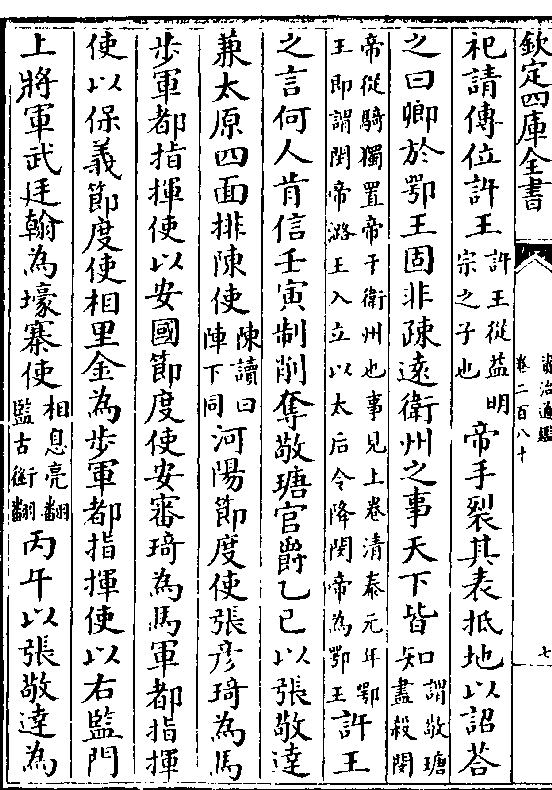 欽定四庫全書
資治通鑑
卷二百八十
七
祀請傳位許王許王從益明宗之子也帝手裂其表抵地以詔荅
之曰卿於鄂王固非疎遠衛州之事天下皆知謂敬瑭盡殺閔
帝從騎獨置帝于衛州也事見上卷清泰元年鄂王即謂閔帝潞王入立以太后令降閔帝為鄂王許王
之言何人肯信壬寅制削奪敬瑭官爵乙巳以張敬達
兼太原四面排陳使陳讀曰陣下同河陽節度使張彦琦為馬
步軍都指揮使以安國節度使安審琦為馬軍都指揮
使以保義節度使相里金為步軍都指揮使以右監門
上將軍武廷翰為壕寨使相息亮翻監古銜翻丙午以張敬達為